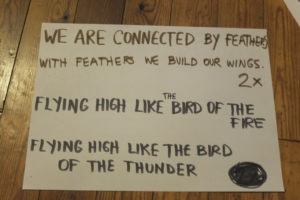 WE ARE CONNECTED BY FEATHERS
WITH FEATHERS WE BUILD OUR WINGS.
2x
THE
FLYING HIGH LIKE BIRD OF THE
FIRE
FLYING HIGH LIKE THE BIRD
OF THE THUNDER